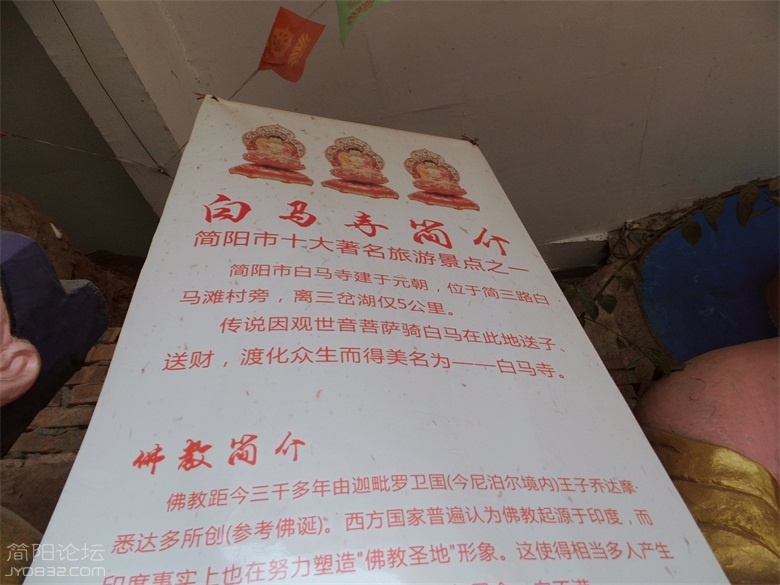 白马寺简介
简阳市十大著名旅游景点之一
简阳市白马寺建于元朝，位于简三路白
马滩村旁，离三岔湖仅5公里。
传说因观世音菩萨骑白马在此地送子、
送财，渡化众生而得美名为——白马寺。
佛教简介
佛教距今三千多年由迦毗罗卫国(今尼泊尔境内)王子乔达摩·
悉达多所创(参考佛诞)。西方国家普遍认为佛教起源于印度，而
印度事实上也在努力塑造"佛教圣地"形象。这使得相当多人产生
简阳论坛
JY0832.com